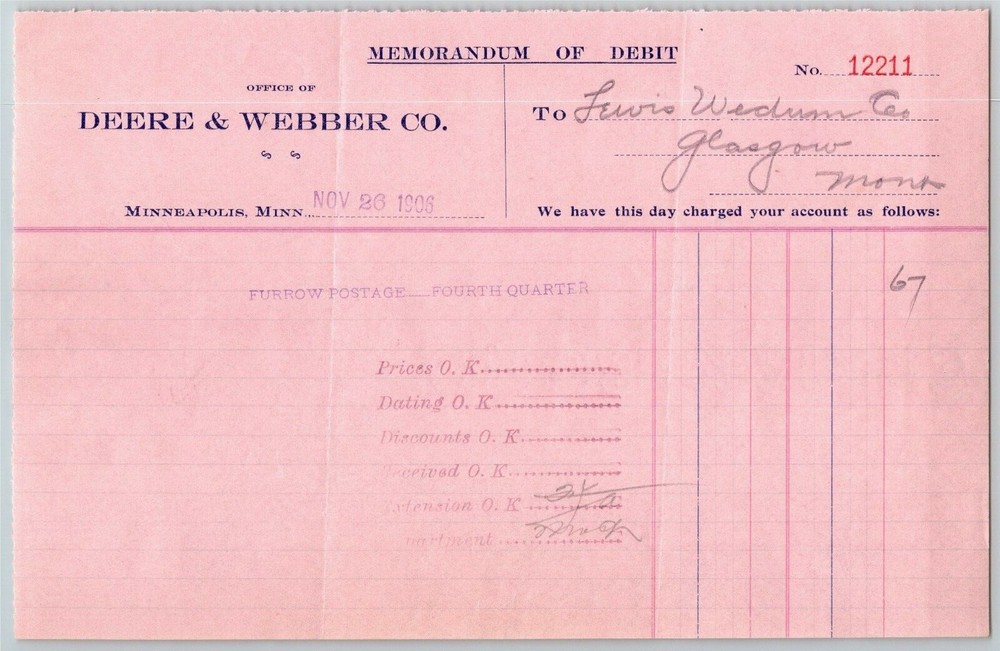 MEMORANDUM OF DEBIT
No. 12211
OFFICE OF
DEERE & WEBBER CO.
To Lewis Wedum Co
Glasgow
Mont
MINNEAPOLIS, MINN. NOV 26 1906
We have this day charged your account as follows:
FURROW POSTAGE FOURTH QUARTER
67
Prices O. K.
Dating O. K.
Discounts O. K.
eceived O. K.
xtension O. K.
artment